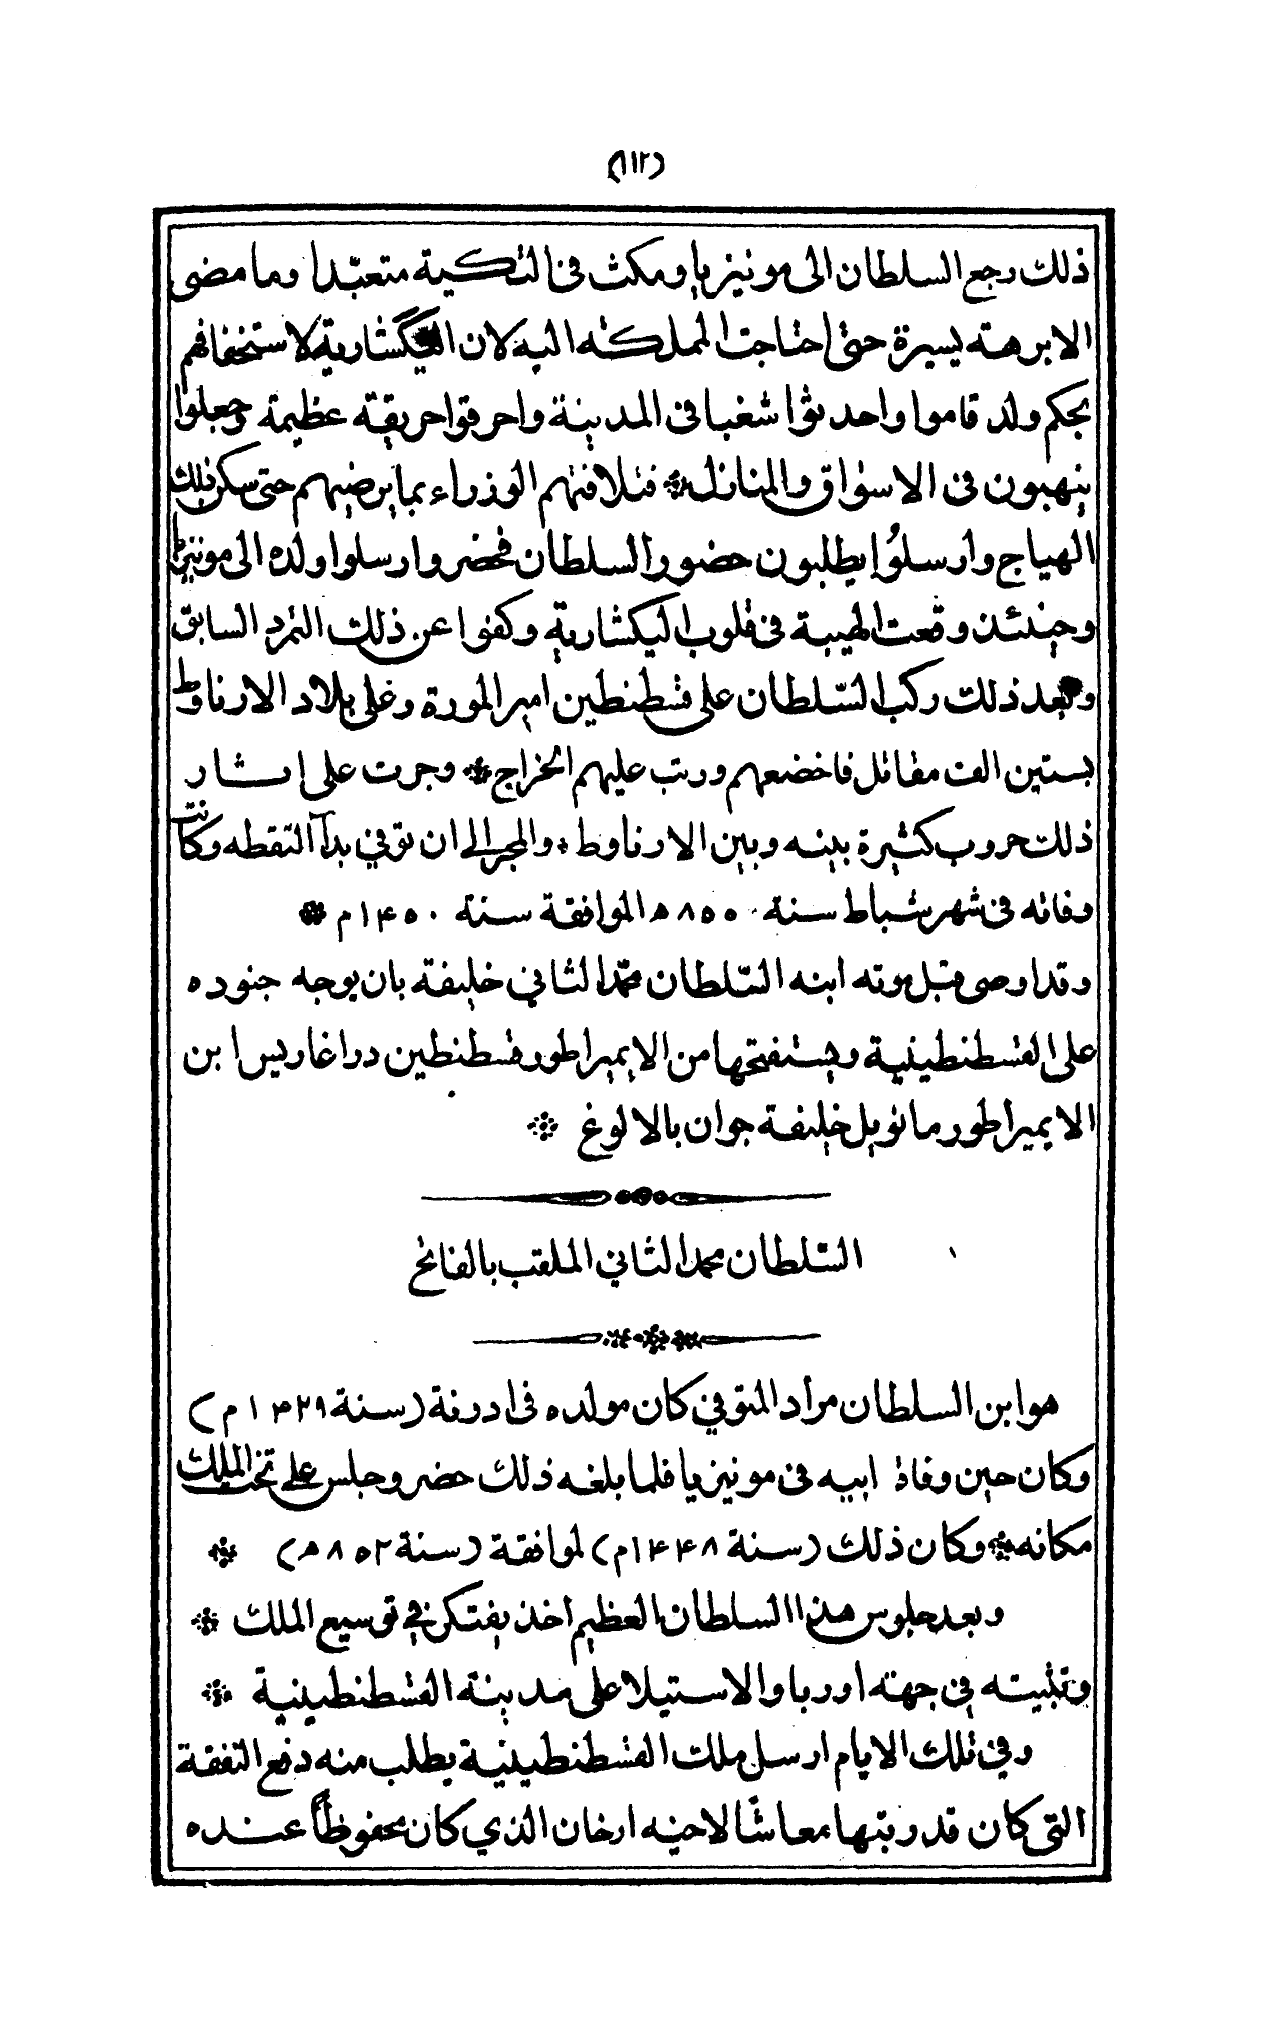 (١١٢)
ذلك رجع السلطان الى مونيزيا ومكث في التكية متعبّدا وما مضى
الا برهته يسيرة حتى احتاجت المملكته اليه لان اليكشارية لاستخفافهم
بحكم ولد قاموا واحدثوا شغبا في المدينة واحرقوا حريقته عظيمة وجعلوا
ينهبون في الاسواق والمنازل * فتلافتهم الوزراء بما يرضيهم حتى سكن ذلك
الهياج وارسلوا يطلبون حضور السلطان فحضر وارسلوا ولده الى مونيزيا
وحينئذ وقعت الهيبة في قلوب اليكشارية وكفوا عن ذلك التمرد السابق
وبعد ذلك ركب السّلطان على قسطنطين امير المورة وعلى بلاد الارناوط
بستين الف مقاتل فاخضعهم ورتب عليهم الخراج * وجرت على اثار
ذلك حروب كثيرة بينه وبين الارناوط * والمجر الى ان توفي بدآ النقطه وكانت
وفاته في شهر شباط سنة ٨٥٥ ه الموافقة سنة ١٤٥٠ م *
وقد اوصى قبل موته ابنه السّلطان محمّد الثاني خليفة بان يوجه جنوده
على القسطنطينية ويستفتحها من الايمبراطور قسطنطين دراغاريس ابن
الايمبراطور مانويل خليفة جوان بالالوغ *
السّلطان محمد الثاني الملقب بالفاتح
هو ابن السلطان مراد المتوفي كان مولده في ادرنة (سنة ١٤٢٩ م)
وكان حين وفاة ابيه في مونيزيا فلما بلغه ذلك حضر وجلس على تخت الملك
مكانه * وكان ذلك (سنة ١٤٤٨م) لموافقة (سنة ٨٥٢ ه) *
وبعد جلوس هذا السلطان العظيم اخذ يفتكر في توسيع الملك *
وتثبيته في جهته اوربا والاستيلا على مدينة القسطنطينية *
وفي تلك الايام ارسل ملك القسطنطينية يطلب منه دفع النفقة
التى كان قد رتبها معاشًا لاخيه ارخان الذي كان محفوظاً عنده